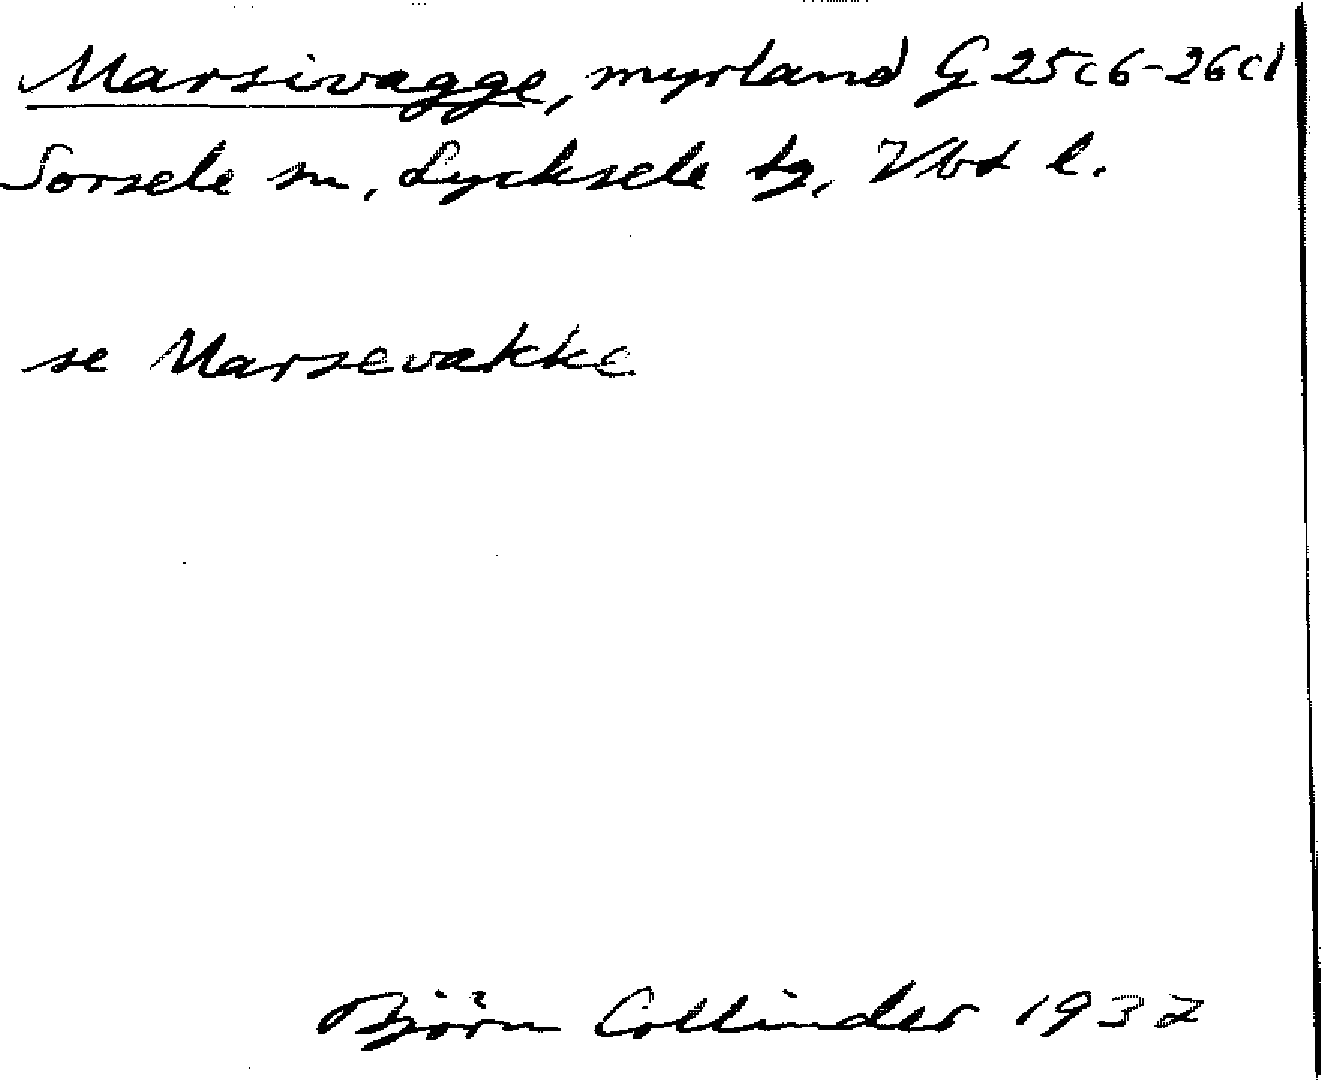 Marsivagge, myrland G 25c6-26c1
Sorsele sn, Lycksele tg, Vbd l.
se Marsevakke
Björn Collinder 1937